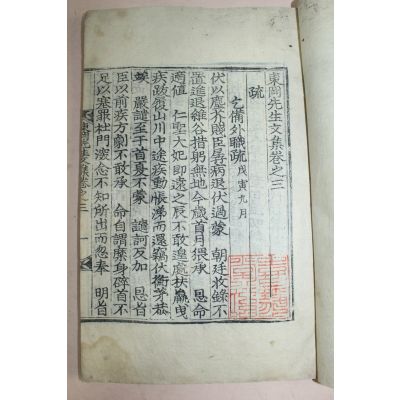 東岡先生文集卷之三
疏
乞補外職疏 戊寅九月
伏以塵芥賤臣屢病退伏過蒙 朝廷收錄不
置進退維谷措躬無地今歲首月猥承 恩命
適値 仁聖大妃卽遠之辰不敢遑處扶羸曳
疾跋履山川中途疾動帳涕而還竊伏衡茅恭
竢 嚴譴至于首夏不蒙 譴訶反加 恩旨
臣以前疾方劇不敢承 命自謂縻身碎首不
足以塞罪杜門淹念不知所出而忽奉 明旨
東岡先生文集卷之三 一